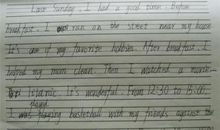 Last Sunday, I had a good time. Before
breakfast, I ran on the street near my house.
It's one of my favorite hobbies. After breakfast, I
helped my mom clean. Then I watched a movie
Titanic. It's wonderful. From 12:30 to 15:00,
I was playing basketball with my friends against the